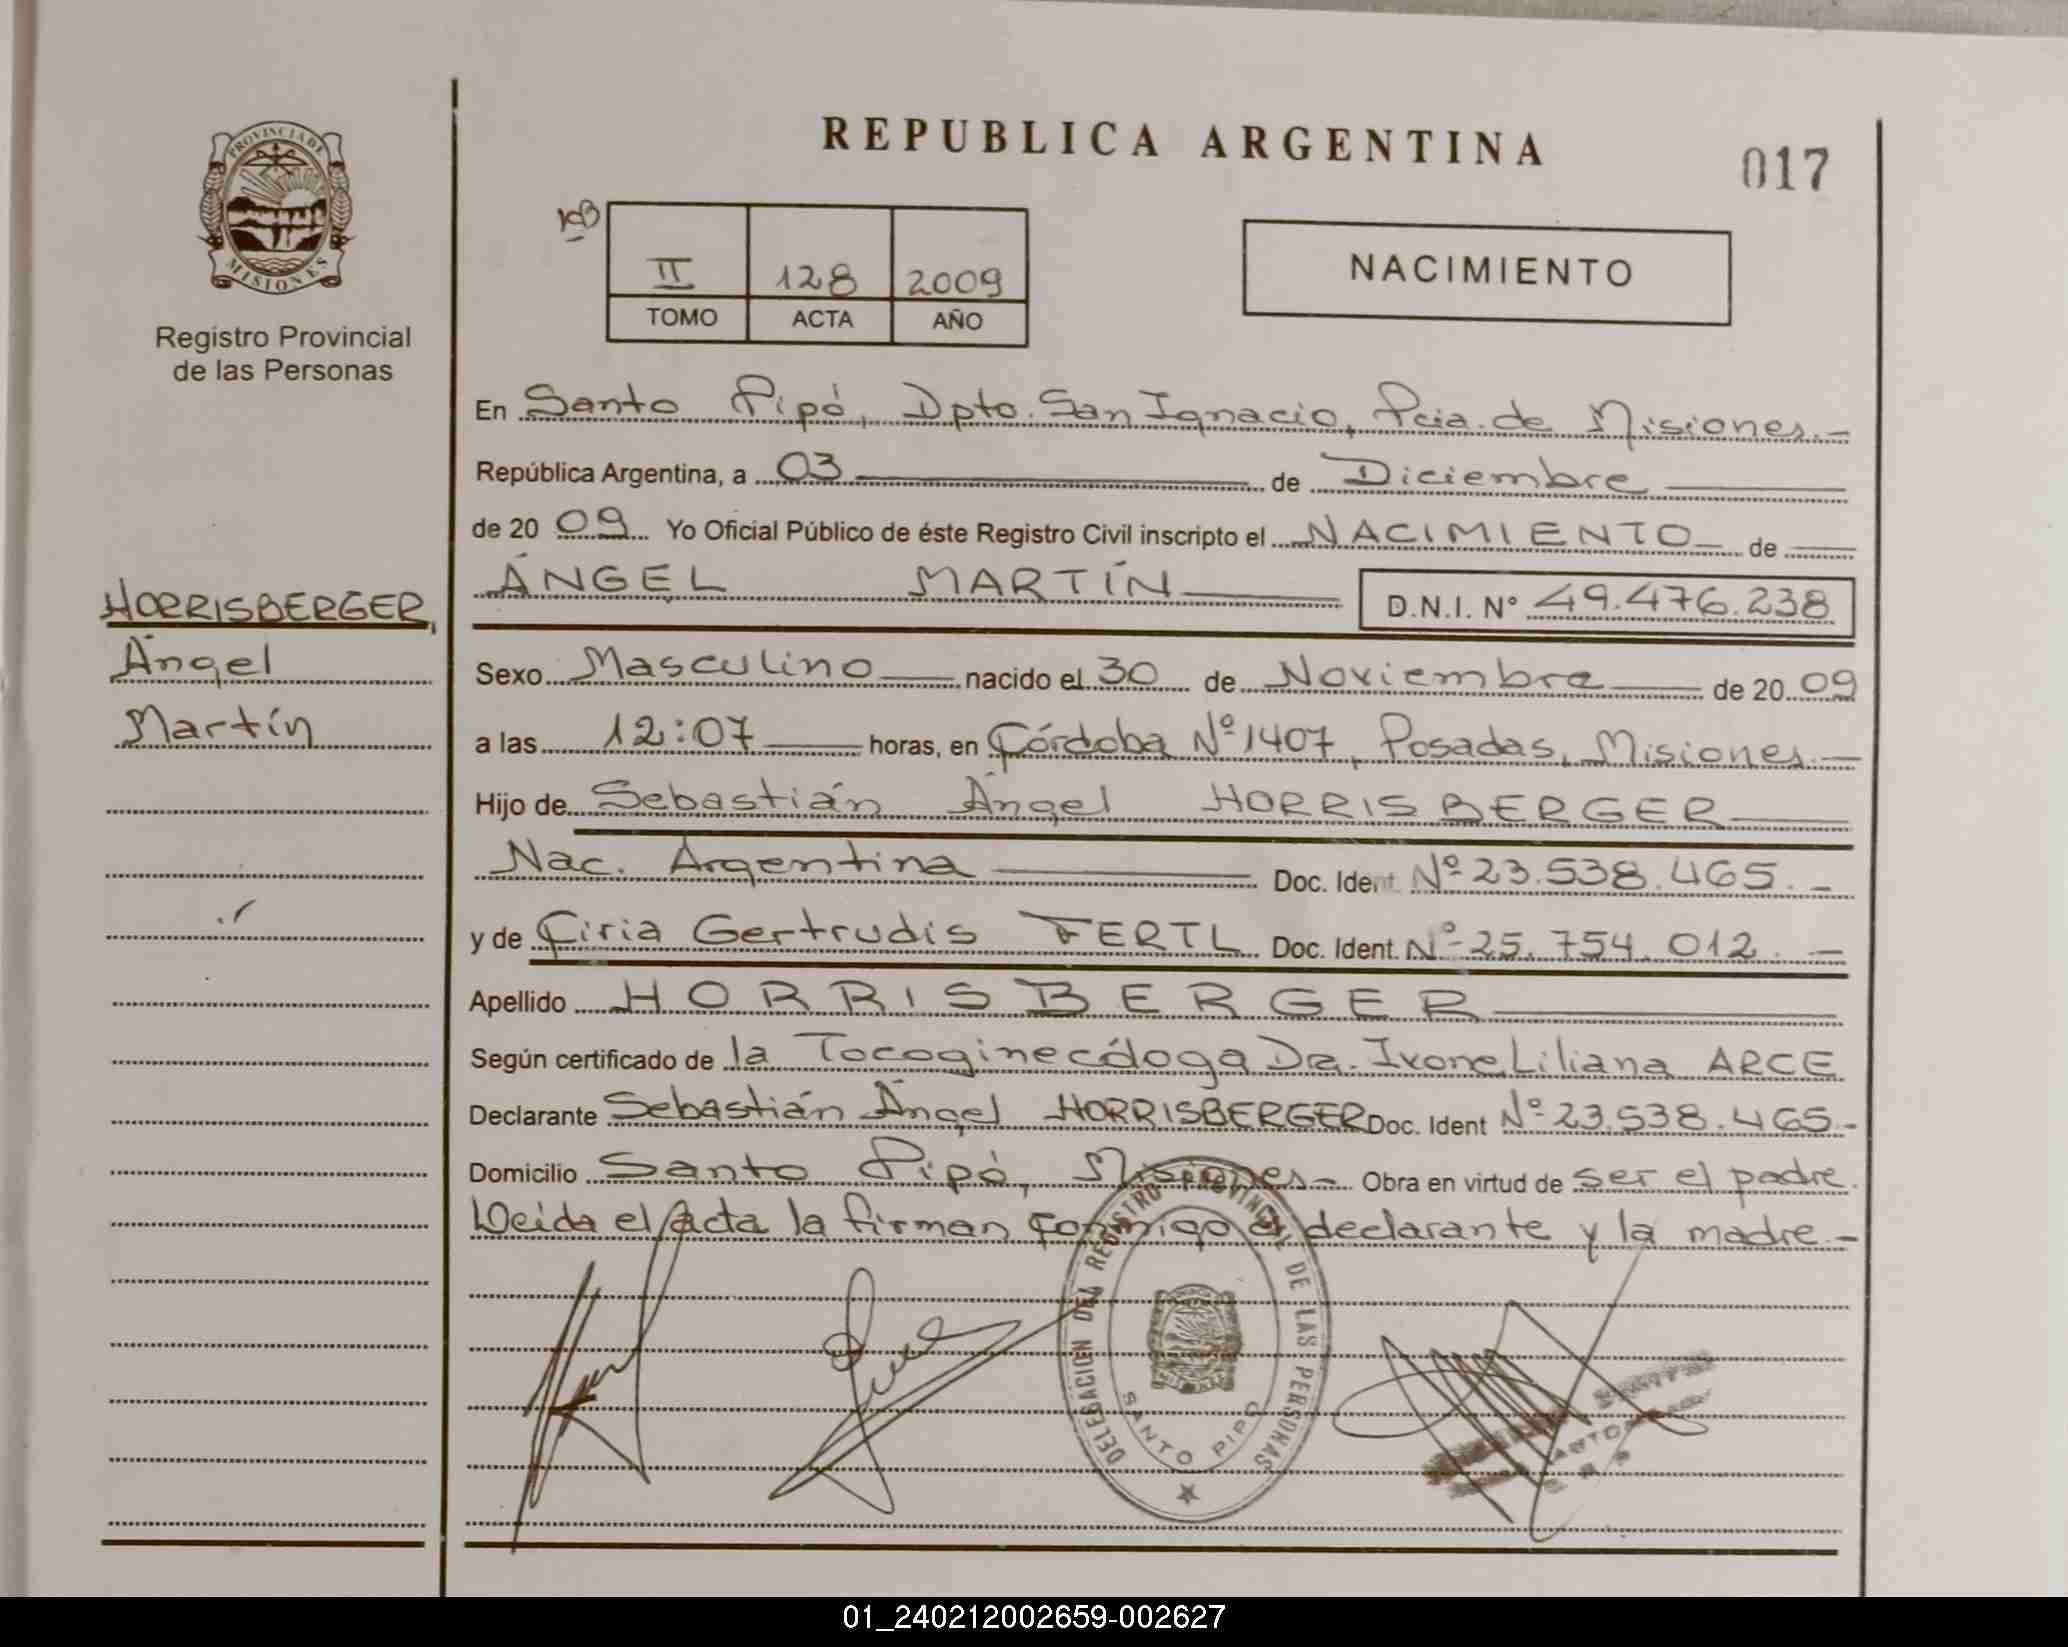 REPUBLICA ARGENTINA
017
PROVINCIA DE MISIONES
Registro Provincial
de las Personas
II 128 2009
TOMO ACTA AÑO
NACIMIENTO
En Santo Pipó, Dpto. San Ignacio, Pcia. de Misiones.-
República Argentina, a 03 de Diciembre
de 20 09 Yo Oficial Público de éste Registro Civil inscripto el NACIMIENTO de
ÁNGEL MARTÍN D.N.I. N° 49.476.238
HORRISBERGER,
Ángel
Martín
Sexo Masculino nacido el 30 de Noviembre de 20 09
a las 12:07 horas, en Córdoba Nº 1407, Posadas, Misiones.-
Hijo de Sebastián Ángel HORRISBERGER
Nac. Argentina Doc. Ident. Nº 23.538.465.-
y de Ciria Gertrudis FERTL Doc. Ident. Nº 25.754.012.-
Apellido HORRISBERGER
Según certificado de la Tocoginecóloga Dra. Ivone Liliana ARCE
Declarante Sebastián Ángel HORRISBERGER Doc. Ident Nº 23.538.465.-
Domicilio Santo Pipó, Misiones- Obra en virtud de ser el padre.
Leida el acta la firman conmigo el declarante y la madre.-
DELEGACION DEL REGISTRO PROVINCIAL DE LAS PERSONAS
SANTO PIPO
01_240212002659-002627